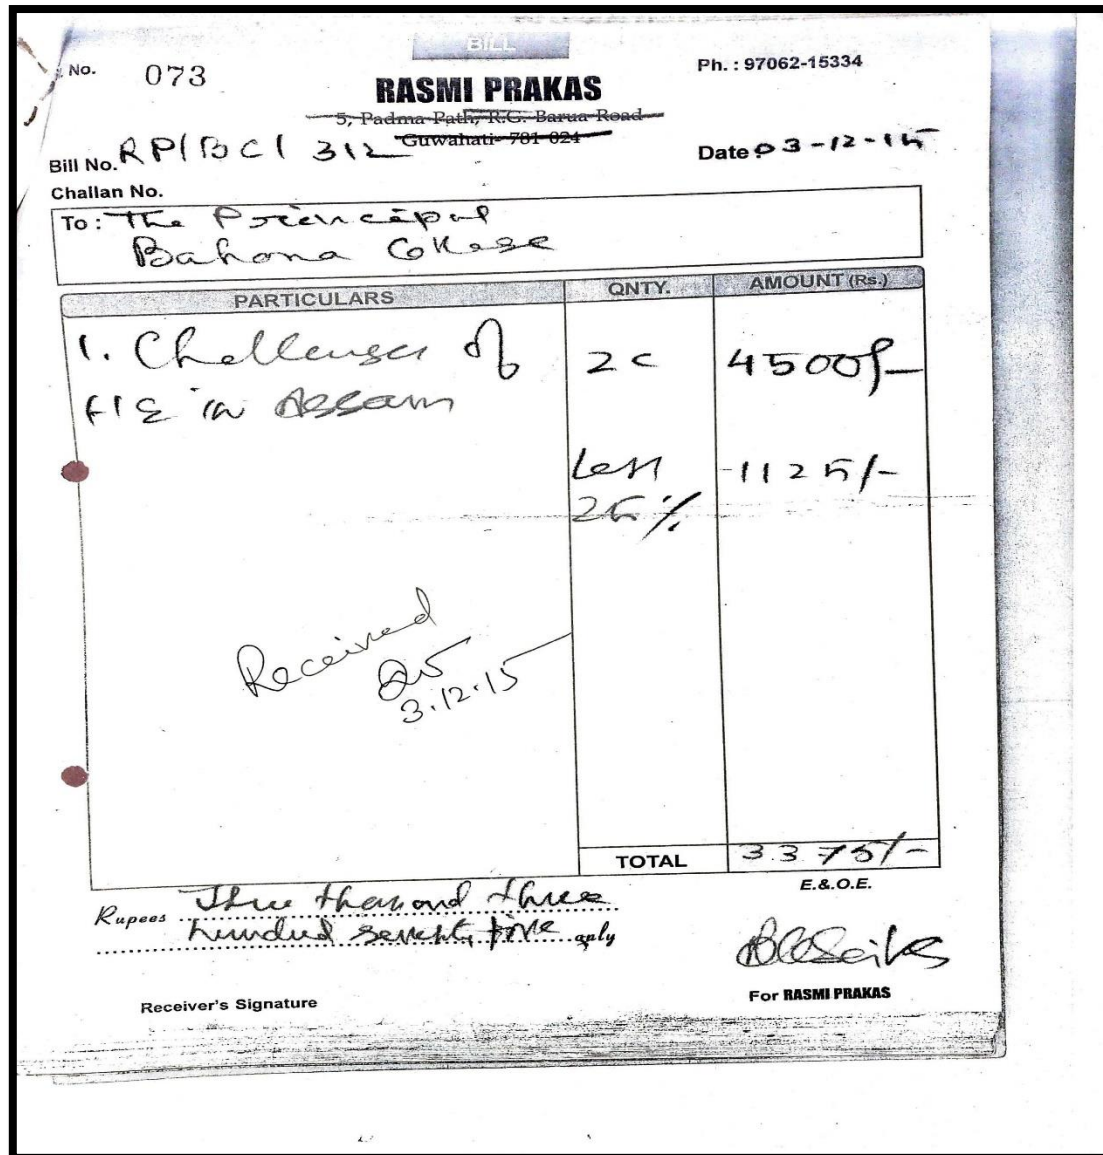 BILL
No. 073
Ph. : 97062-15334
RASMI PRAKAS
5, Padma Path, R.G. Barua Road
Guwahati- 781 024
Bill No. RP/BC/ 312
Date 03-12-15
Challan No.
To : The Principal
Bahona College
PARTICULARS QNTY. AMOUNT (Rs.)
1. Challenges of 2c 4500/-
H E in Assam
Less -1125/-
25%
Received
3.12.15
TOTAL 3375/-
E.&.O.E.
Rupees Three thousand three
hundred seventy five only
Receiver's Signature
For RASMI PRAKAS